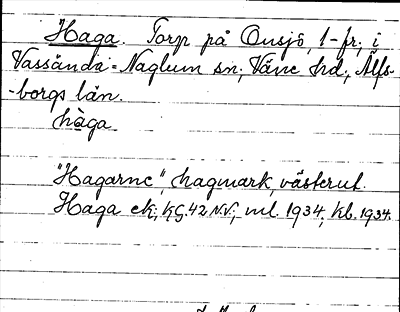 Haga. Torp på Onsjö, 1-fr., i
Vassända-Naglum sn; Väne hd., Älfs-
-borgs län.
hàga
"Hagarne", hagmark, västerut.
Haga ek; KG.42 N.V.; ml. 1934; kb. 1934.